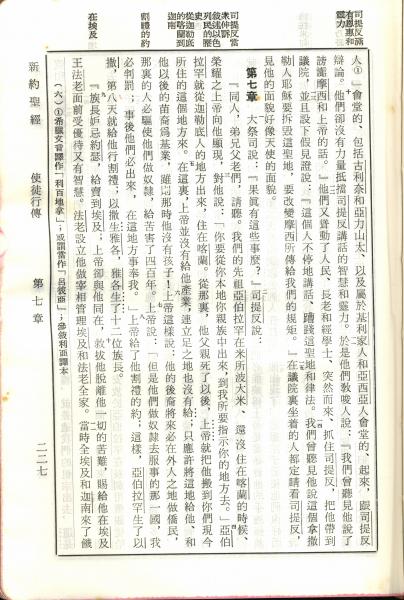 司提反滿
有恩惠和
靈力
人①」會堂的、包括古利奈和亞力山太、以及屬於基利家人和亞西亞人會堂的、起來，跟司提反
辯論。他們卻沒有力量抵擋司提反講話的智慧和靈力。於是他們教唆人說：『我們曾聽見他說了
謗讟摩西和上帝的話。』他們又聳動了人民、長老和經學士、突然而來、抓住司提反，把他帶到
議院，並且設下假見證說：『這個人不停地講話、蹧踐這聖地和律法。我們曾聽見他說這個拿撒
勒人耶穌要拆毀這聖地，要改變摩西所傳給我們的規矩。』在議院裏坐着的人都定睛看司提反，
見他的面貌好像天使的面貌。
第七章　大祭司說：『果眞有這些事麼？』司提反說：
司提反當
敘述以色
列民的歷
史
從迦勒底
的喀蘭到
迦南
『同人，弟兄父老們，請聽。我們的先祖亞伯拉罕在米所波大米、還沒住在喀蘭的時候、
榮耀之上帝向他顯現，對他說：『你要從你本地你親族中出來，到我所要指示你的地方去。』亞伯
拉罕就從迦勒底人的地方出來，住在喀蘭。從那裏、他父親死了以後，上帝就把他搬到你們現今
所住的這個地方來。在這裏、上帝並沒有給他產業，連立足之地也沒有給；只應許將這地給他、和
他以後的苗裔爲基業，雖然那時他沒有孩子！上帝這樣說：他的後裔將來必在外人之地做僑民，
那裏的人必驅使他們做奴隸，給苦害了四百年。上帝說：『但是他們做奴隸去服事的那一國，我
割禮的約
必判罰；事後他們必出來，在這地方事奉我。』上帝給了他割禮的約；這樣，亞伯拉罕生了以
撒，第八天就給他行割禮；以撒生雅各，雅各生了十二位族長。
在埃及
『族長妒忌約瑟，給賣到埃及；上帝卻與他同在，救拔他脫離他一切的苦難，賜給他在埃及
王法老面前受優待又有智慧。法老設立他做宰相管理埃及和法老全家。當時全埃及和迦南來了饑
（六）①希臘文音譯作「利百地拿」；或謂當作「呂彼亞」；參敘利亞譯本
新約聖經　使徒行傳　第七章　二三七